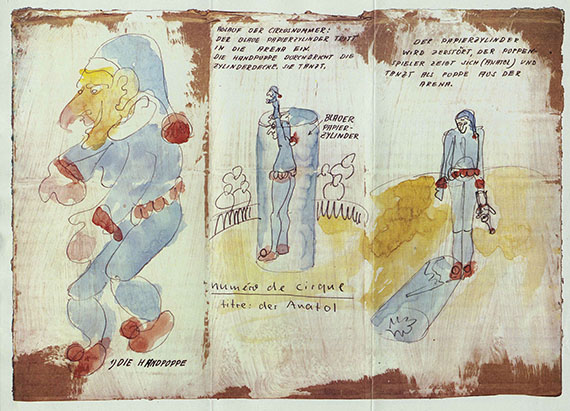 ABLAUF DER CIRKUSNUMMER:
DER BLAUE PAPIERZYLINDER TRITT
IN DIE ARENA EIN.
DIE HANDPUPPE DURCHBRICHT DIE
ZYLINDERDECKE, SIE TANZT.
BLAUER
PAPIER-
ZYLINDER
numéro de cirque
titre: der Anatol
1) DIE HANDPUPPE
DER PAPIERZYLINDER
WIRD ZERSTÖRT, DER PUPPEN-
SPIELER ZEIGT SICH (ANATOL) UND
TANZT ALS PUPPE AUS DER
ARENA.